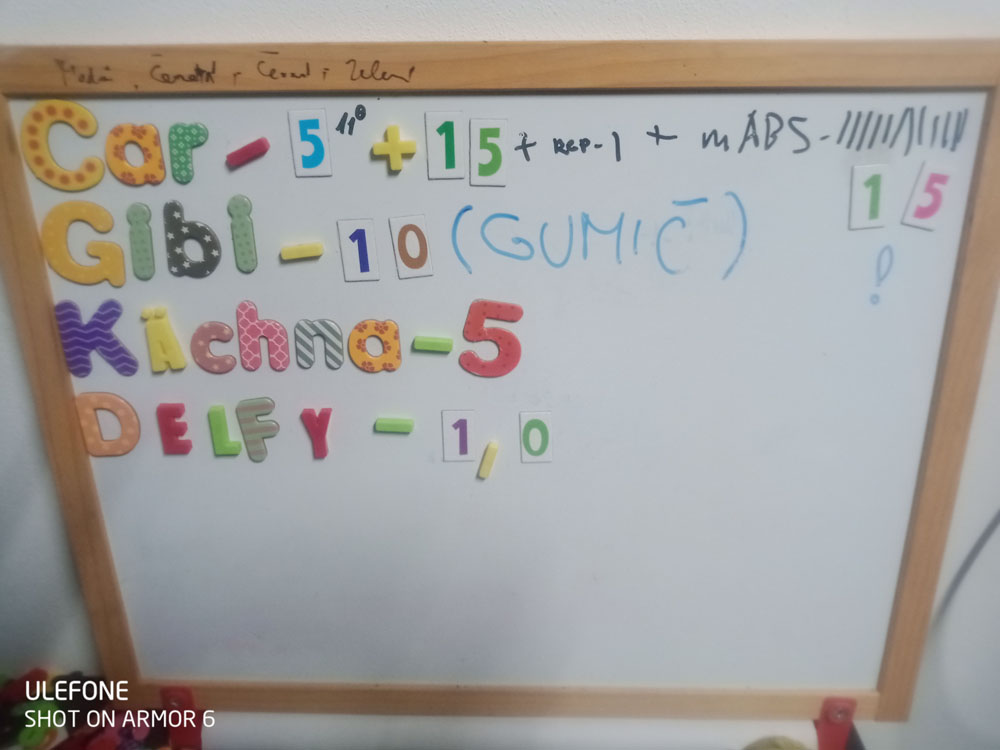 Car - 5 11° + 15 + RCP-1 + mABS -
15
!
Gibi - 10 (GUMIČ)
KÄchna - 5
DELFY - 1,0
ULEFONE
SHOT ON ARMOR 6